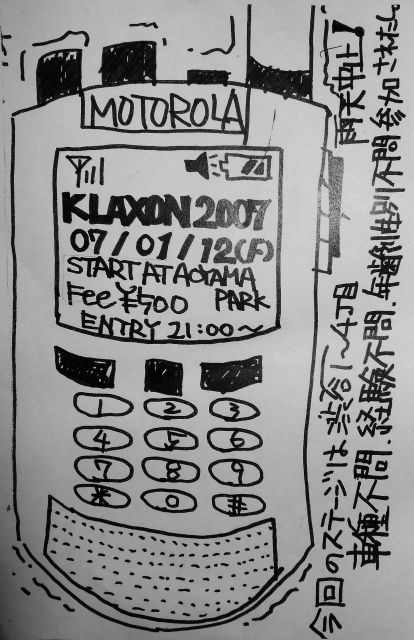 MOTOROLA
KLAXON 2007
07/01/12(F)
START AT AOYAMA
Fee ¥500 PARK
ENTRY 21:00～
1 2 3
4 5 6
7 8 9
* 0 #
雨天中止!
今回のステージは渋谷1～4丁目
車種不問.経験不問.年齢性別不問参加されたし